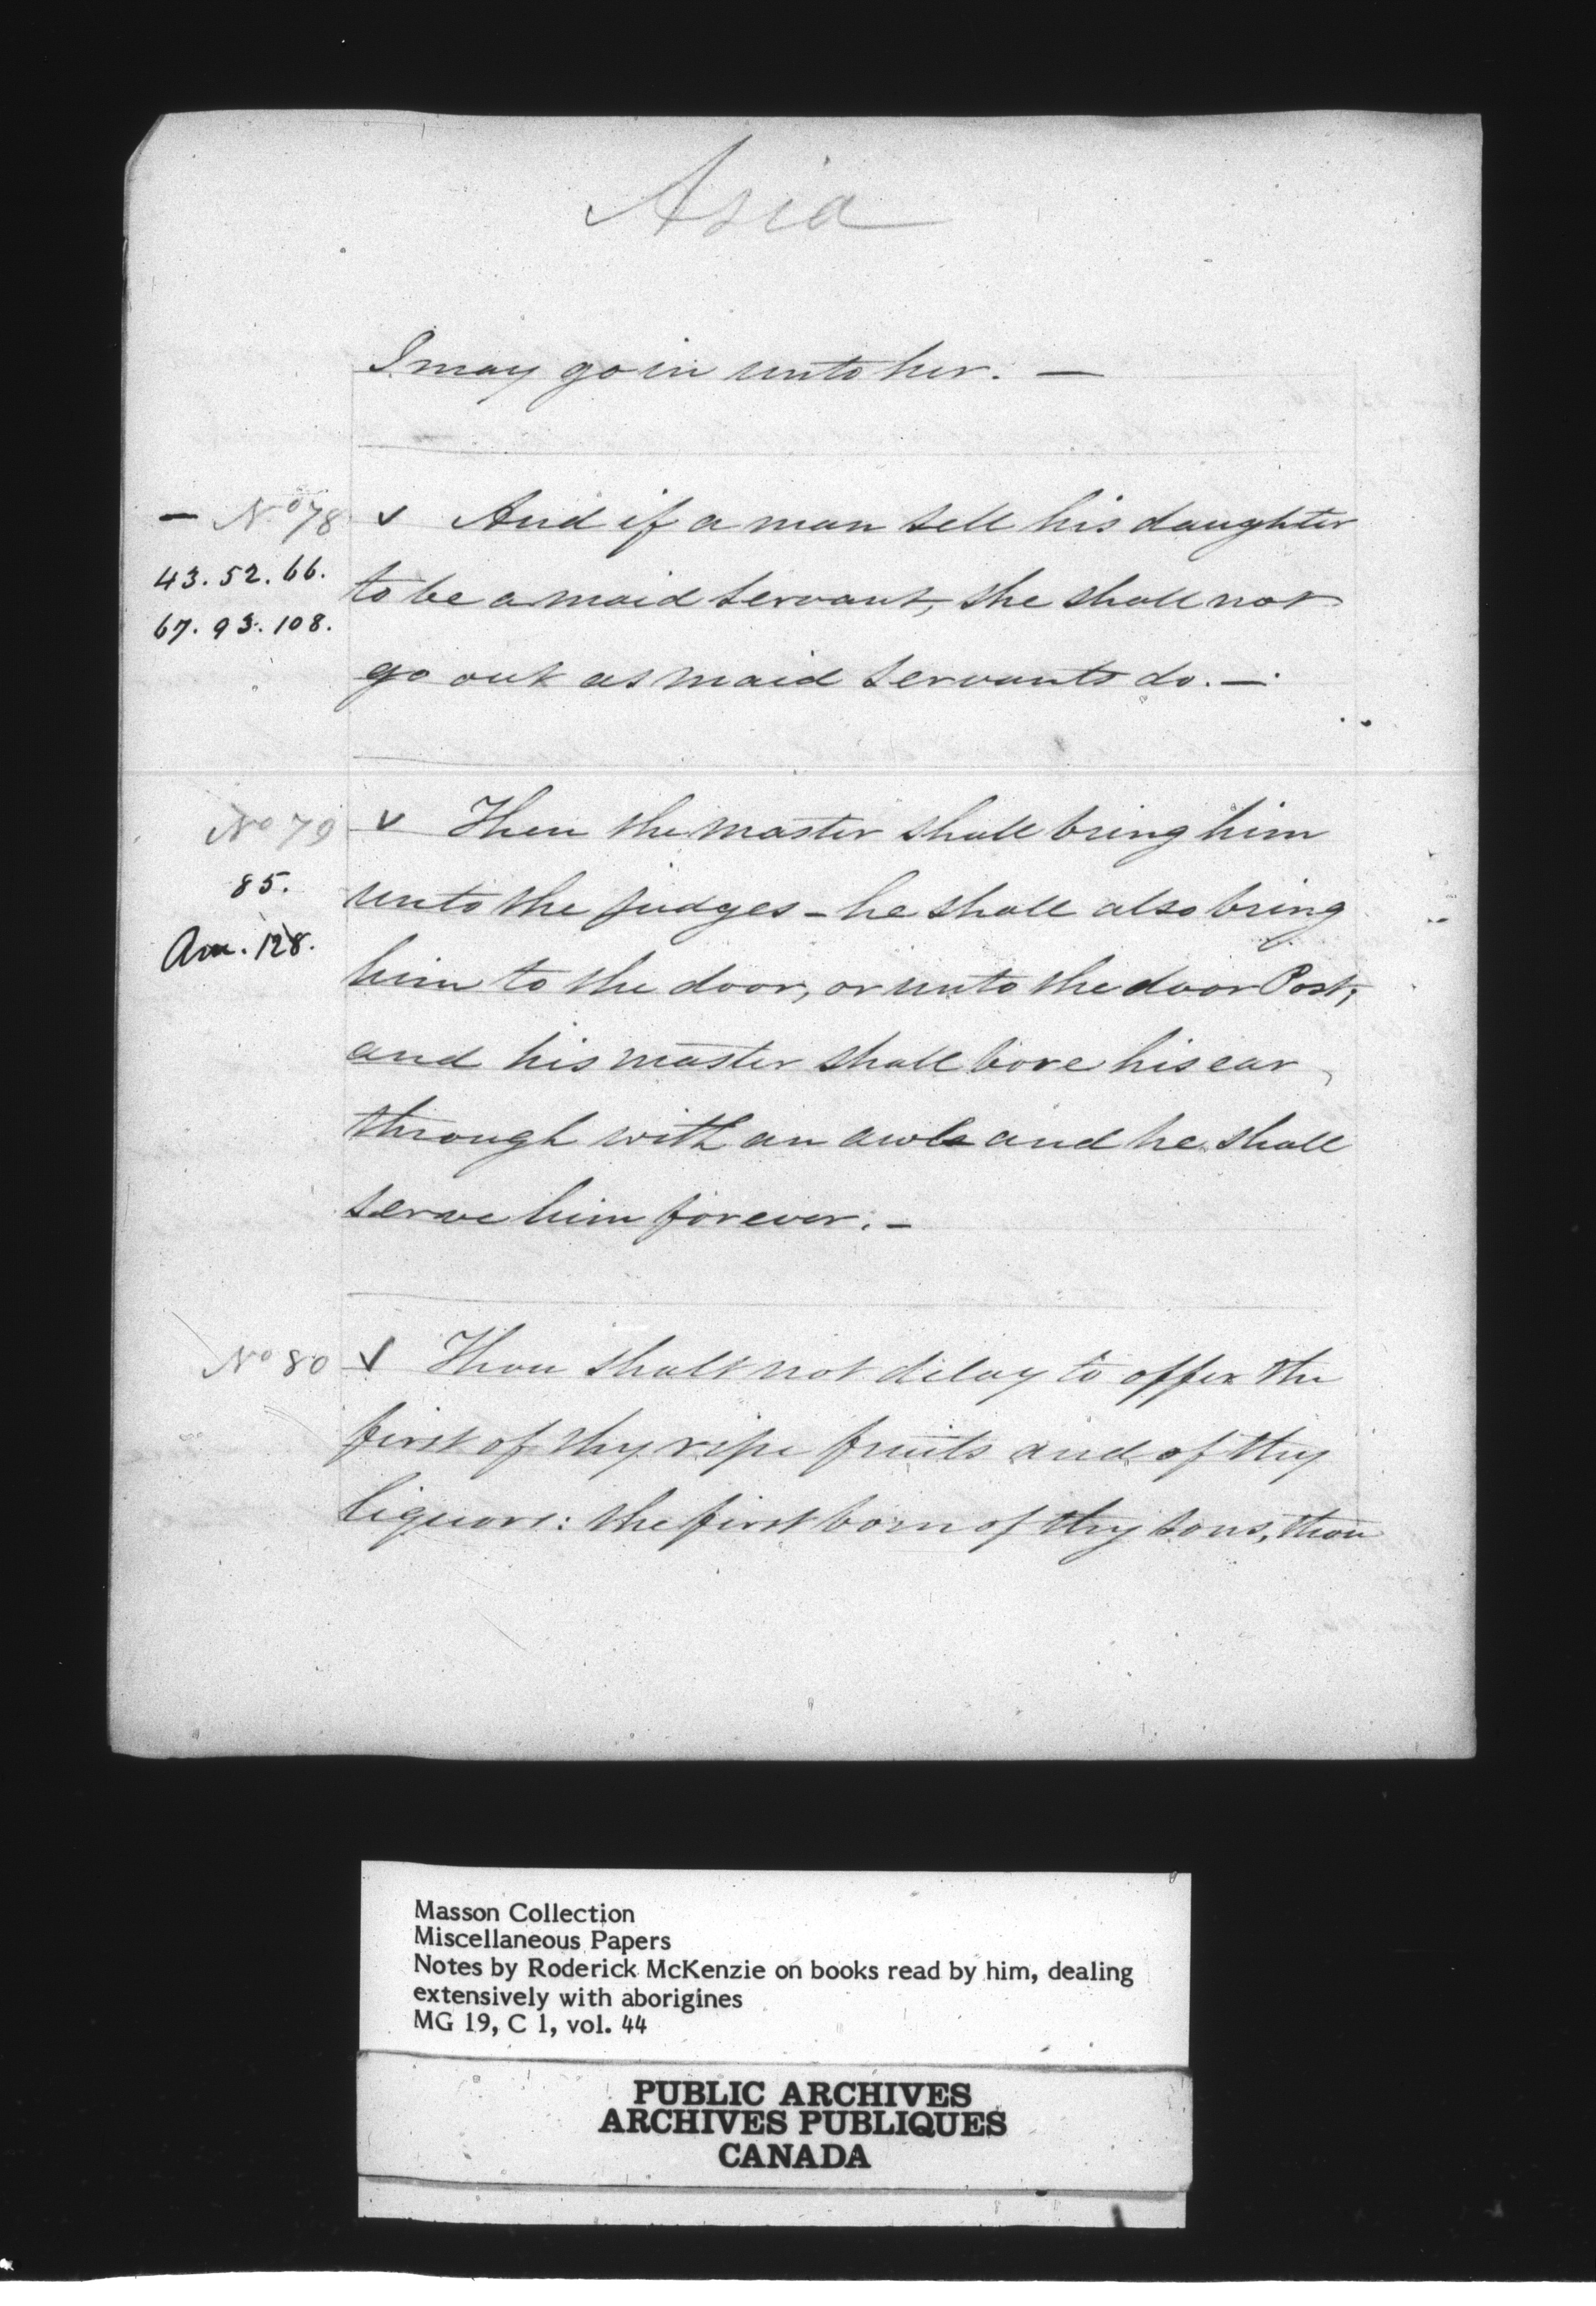 Asia
I may go in unto her. —
— No 78 ✓ And if a man sell his daughter
43. 52. 66.
to be a maid servant, she shall not
67. 93. 108.
go out as maid servants do. —
No 79 ✓ Then the master shall bring him
85.
unto the judges – he shall also bring
Am. 128.
him to the door, or unto the door Post;
and his master shall bore his ear,
through with an awl and he shall
serve him forever. –
No 80 ✓ Thou shalt not delay to offer the
first of thy ripe fruits and of thy
liquors: the first born of thy sons, thou
Masson Collection
Miscellaneous Papers
Notes by Roderick McKenzie on books read by him, dealing
extensively with aborigines
MG 19, C 1, vol. 44
PUBLIC ARCHIVES
ARCHIVES PUBLIQUES
CANADA